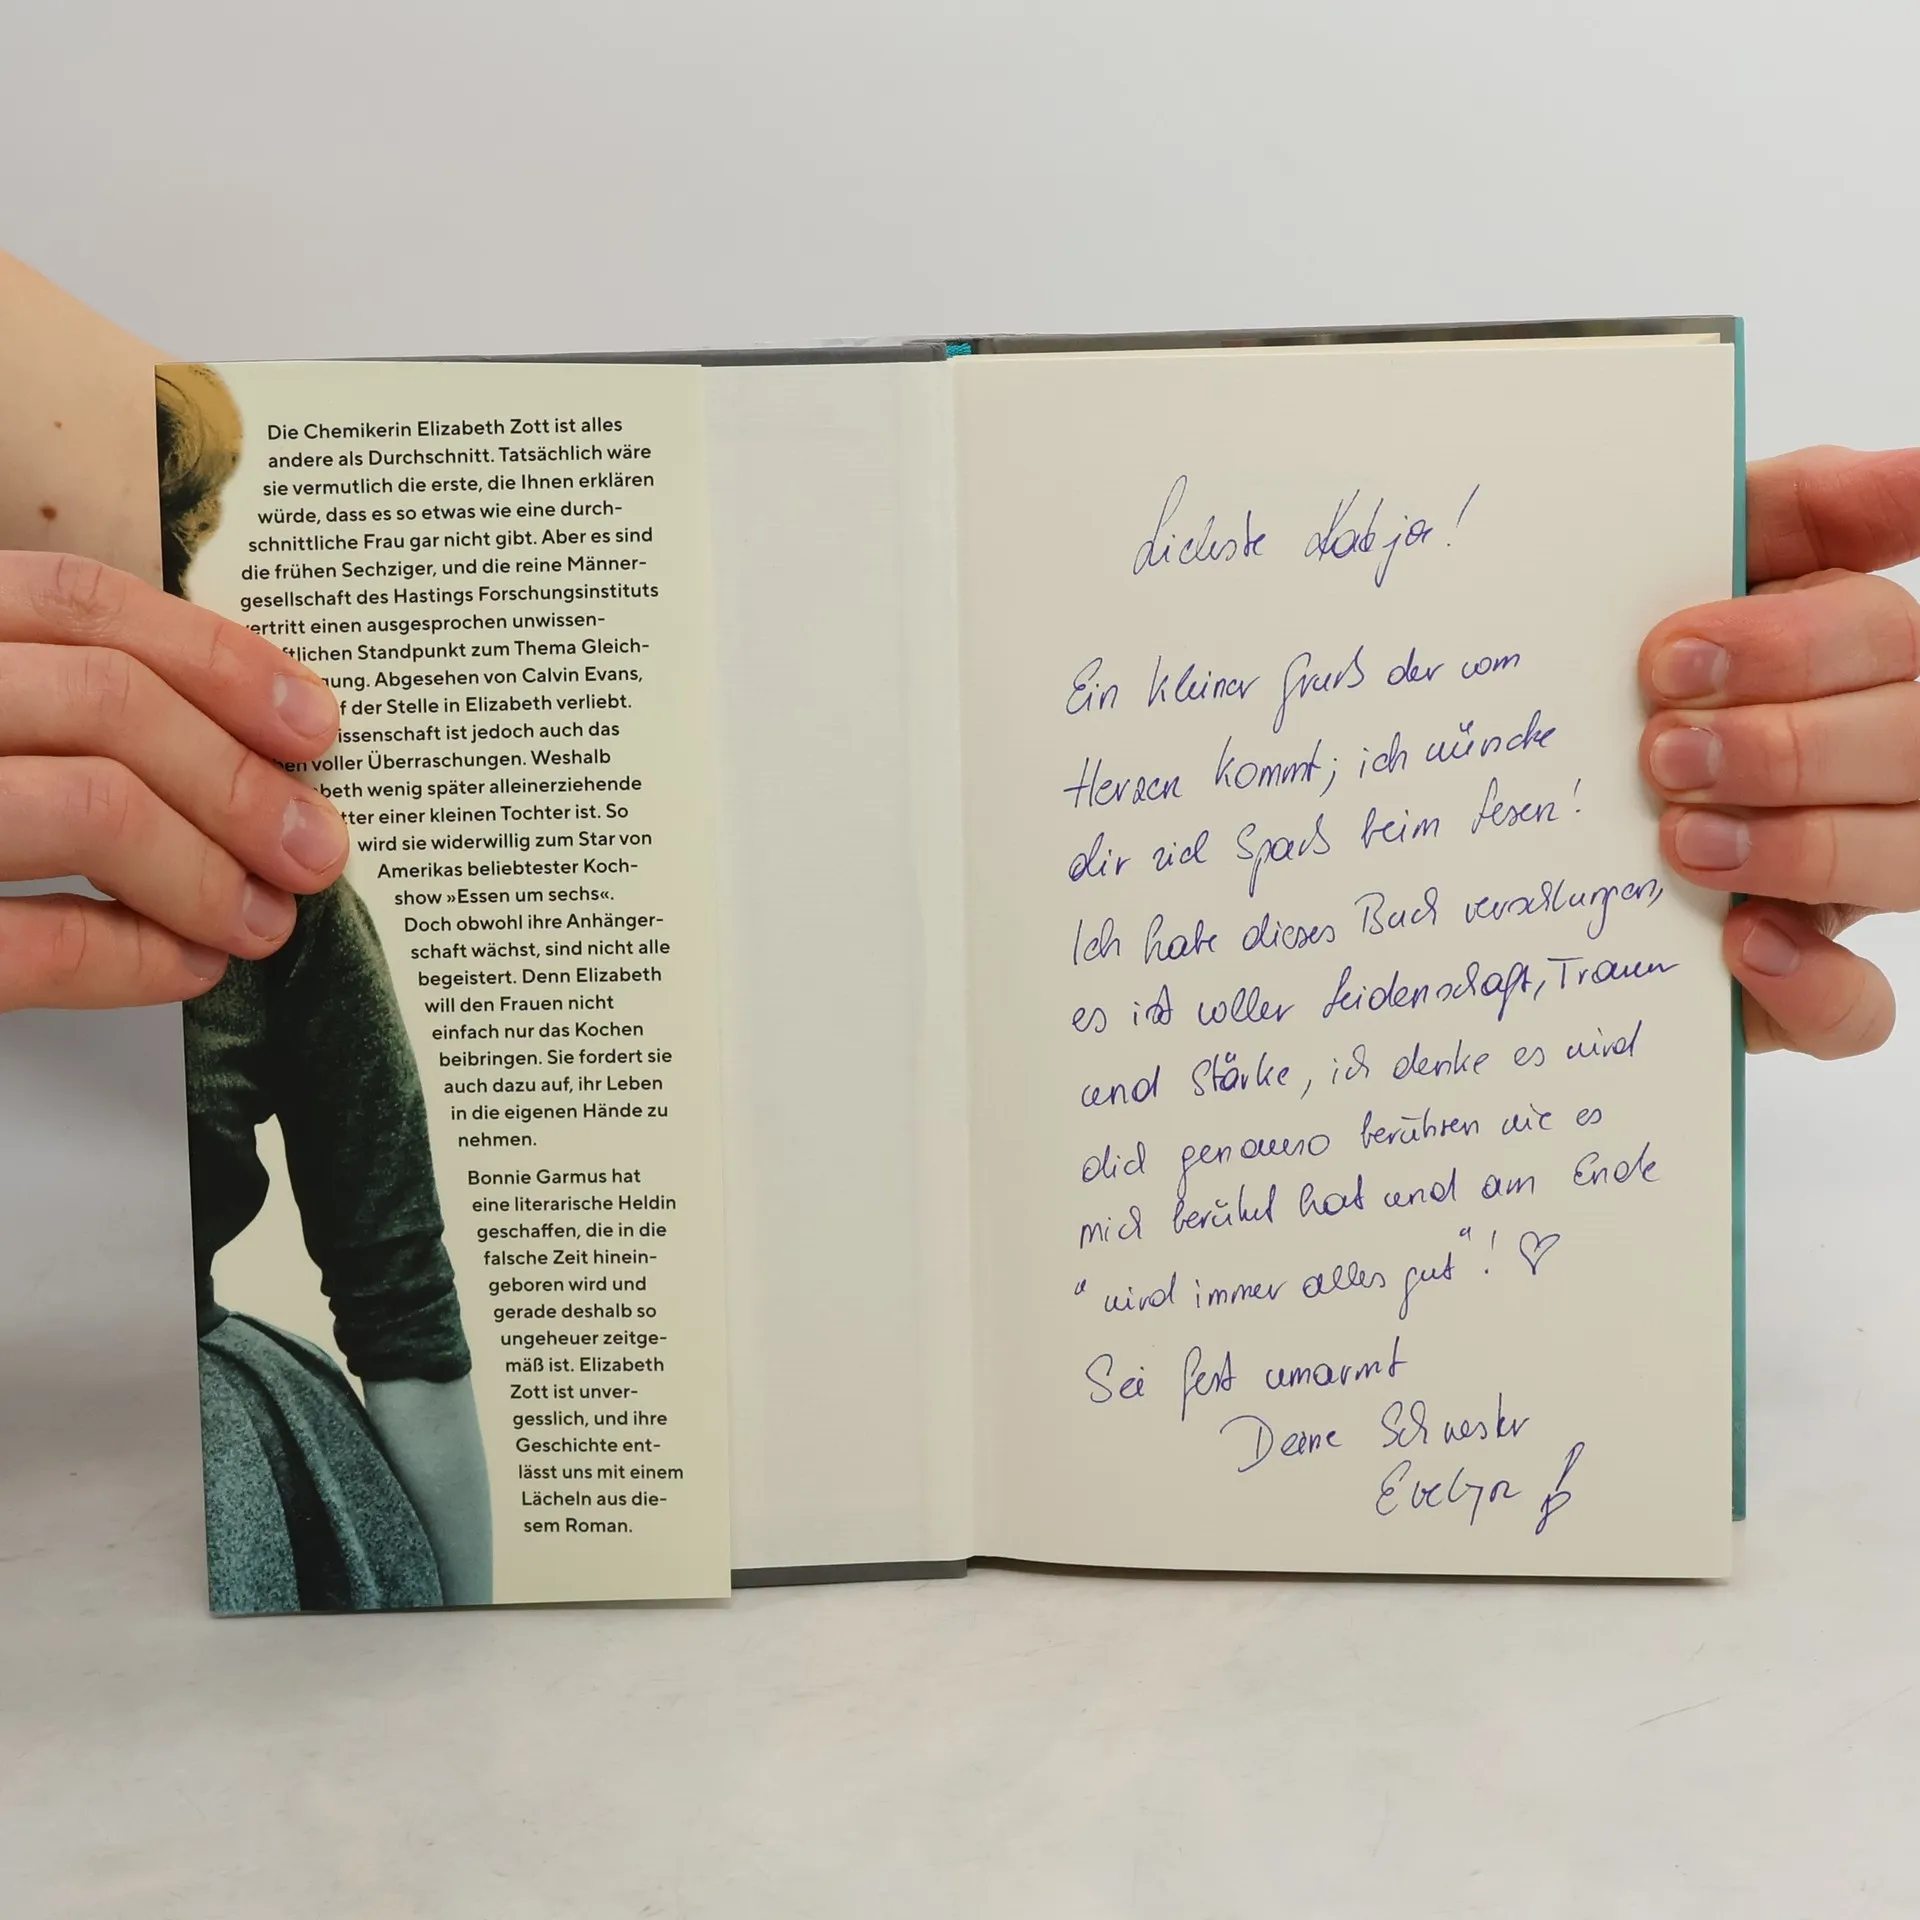 Die Chemikerin Elizabeth Zott ist alles
andere als Durchschnitt. Tatsächlich wäre
sie vermutlich die erste, die Ihnen erklären
würde, dass es so etwas wie eine durch-
schnittliche Frau gar nicht gibt. Aber es sind
die frühen Sechziger, und die reine Männer-
gesellschaft des Hastings Forschungsinstituts
ertritt einen ausgesprochen unwissen-
ftlichen Standpunkt zum Thema Gleich-
gung. Abgesehen von Calvin Evans,
f der Stelle in Elizabeth verliebt.
issenschaft ist jedoch auch das
ben voller Überraschungen. Weshalb
beth wenig später alleinerziehende
tter einer kleinen Tochter ist. So
wird sie widerwillig zum Star von
Amerikas beliebtester Koch-
show »Essen um sechs«.
Doch obwohl ihre Anhänger-
schaft wächst, sind nicht alle
begeistert. Denn Elizabeth
will den Frauen nicht
einfach nur das Kochen
beibringen. Sie fordert sie
auch dazu auf, ihr Leben
in die eigenen Hände zu
nehmen.
Bonnie Garmus hat
eine literarische Heldin
geschaffen, die in die
falsche Zeit hinein-
geboren wird und
gerade deshalb so
ungeheuer zeitge-
mäß ist. Elizabeth
Zott ist unver-
gesslich, und ihre
Geschichte ent-
lässt uns mit einem
Lächeln aus die-
sem Roman.
Liebste Katja!
Ein kleiner Gruß der vom
Herzen kommt; ich wünsche
dir viel Spaß beim Lesen!
Ich habe dieses Buch verschlungen,
es ist voller Leidenschaft, Trauer
und Stärke, ich denke es wird
dich genauso berühren wie es
mich berührt hat und am Ende
"wird immer alles gut"! ♡
Sei fest umarmt
Deine Schwester
Evelyn